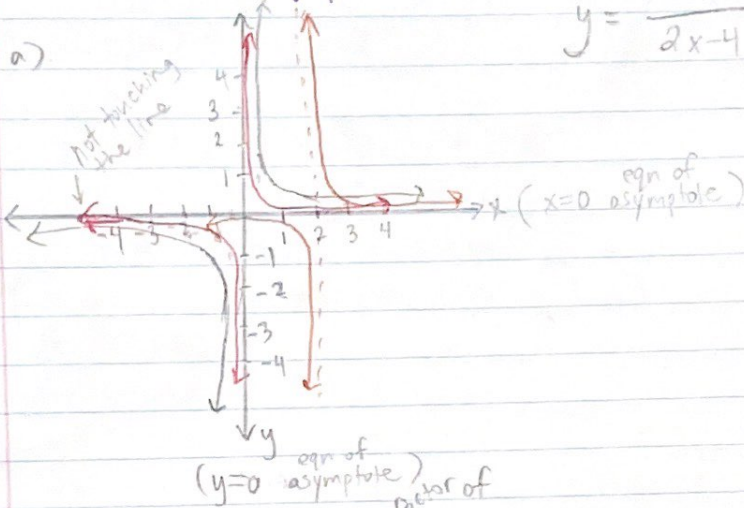 a)
y =
2x-4
not touching
the line
4
3
2
1
-4 -3 -2
1 2 3 4
x (x=0 eqn of
asymptote)
-1
-2
-3
-4
y
(y=0 eqn of
asymptote)
of